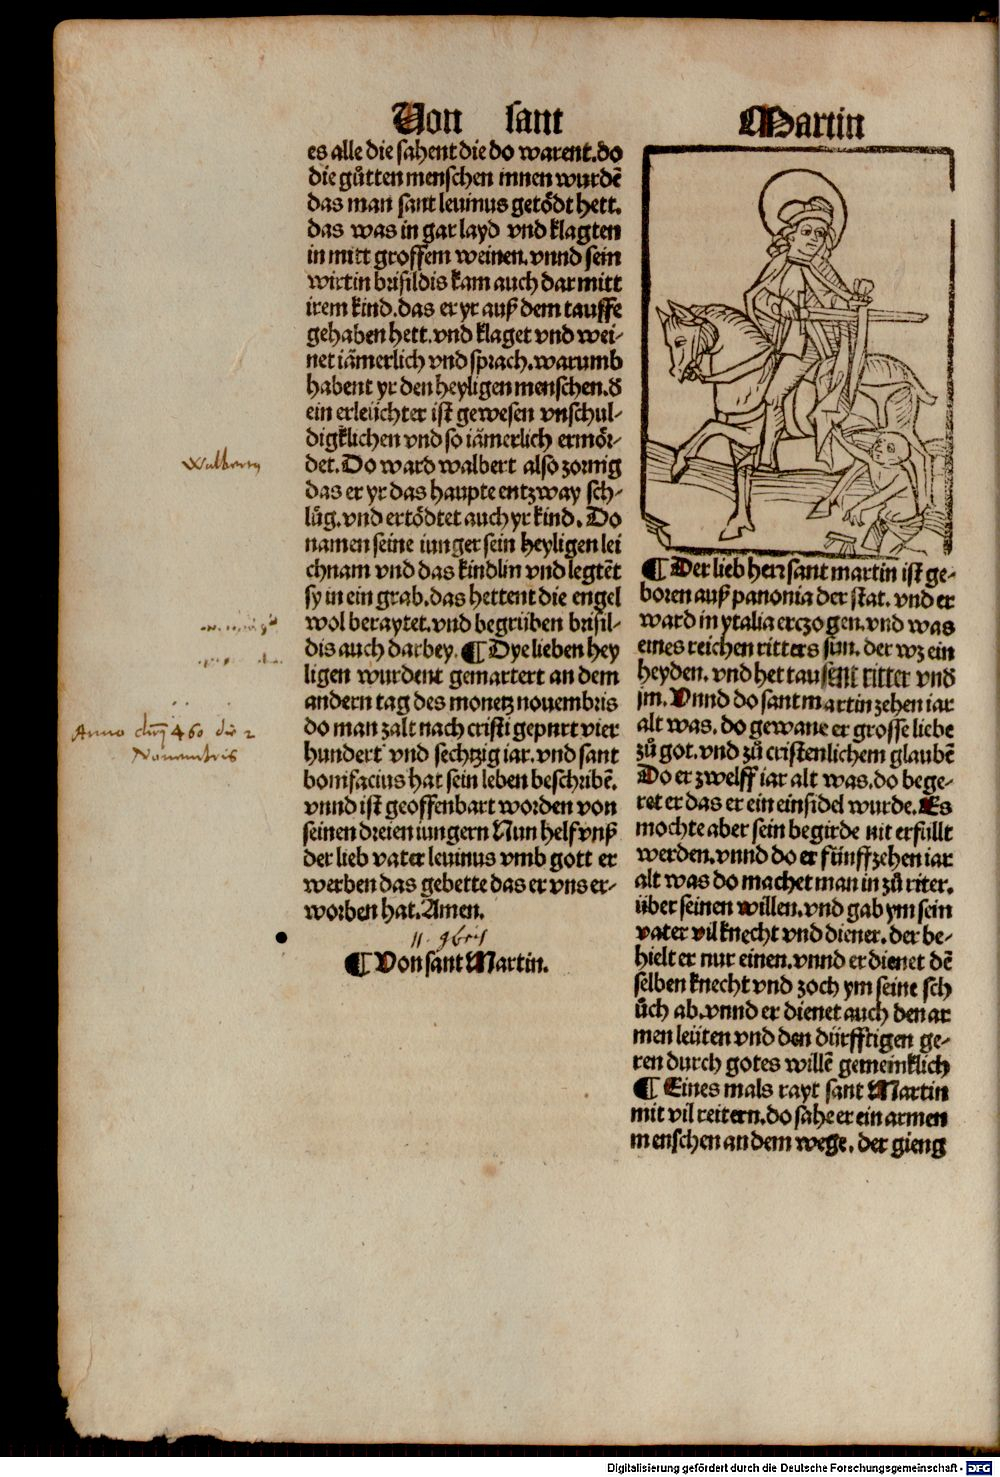 Von sant Martin
es alle die sahent die do warent. do
die gůtten menschen innen wurdē
das man sant leuinus getödt hett.
das was in gar layd vnd klagten
in mitt grossem weinen. vnnd sein
wirtin brisildis kam auch dar mitt
irem kind. das er yr auß dem tauffe
gehaben hett. vnd klaget vnd wei-
net iämerlich vnd sprach. warumb
habent yr den heyligen menschen. d̄
ein erleüchter ist gewesen vnschul-
digklichen vnd so iämerlich ermör-
det. Do ward walbert also zornig
das er yr das haupte entzway sch-
lůg. vnd ertödtet auch yr kind. Do
namen seine iunger sein heyligen lei
chnam vnd das kindlin vnd legtēt
sy in ein grab. das hettent die engel
wol beraytet. vnd begrůben brisil-
dis auch darbey. ¶ Dye lieben hey
ligen wurdent gemartert an dem
andern tag des monetz nouembris
do man zalt nach cristi gepurt vier
hundert vnd sechtzig iar. vnd sant
bonifacius hat sein leben beschribē.
vnnd ist geoffenbart worden von
seinen dreien iungern Nun helf vnß
der lieb vater leuinus vmb gott er
werben das gebette das er vns er-
worben hat. Amen.
11. 9bris
¶ Von sant Martin.
Walbertus
Anno dni 460 die 2
Nouembris
¶ Der lieb herr sant martin ist ge-
boren auß panonia der stat. vnd er
ward in ytalia erczogen. vnd was
eines reichen ritters sun. der wz ein
heyden. vnd het tausent ritter vnd̄
jm. Vnnd do sant martin zehen iar
alt was. do gewane er grosse liebe
zů got. vnd zů cristenlichem glaubē
Do er zwelff iar alt was. do bege-
ret er das er ein einsidel wurde. Es
mochte aber sein begirde nit erfüllt
werden. vnnd do er fünffzehen iar
alt was do machet man in zů riter.
über seinen willen. vnd gab ym sein
vater vil knecht vnd diener. der be-
hielt er nur einen. vnnd er dienet dē
selben knecht vnd zoch ym seine sch
ůch ab. vnnd er dienet auch den ar
men leüten vnd den dürfftigen ge-
ren durch gotes willē gemeinklich
¶ Eines mals rayt sant Martin
mit vil reitern. do sahe er ein armen
menschen an dem wege. der gieng
Digitalisierung gefördert durch die Deutsche Forschungsgemeinschaft - DFG